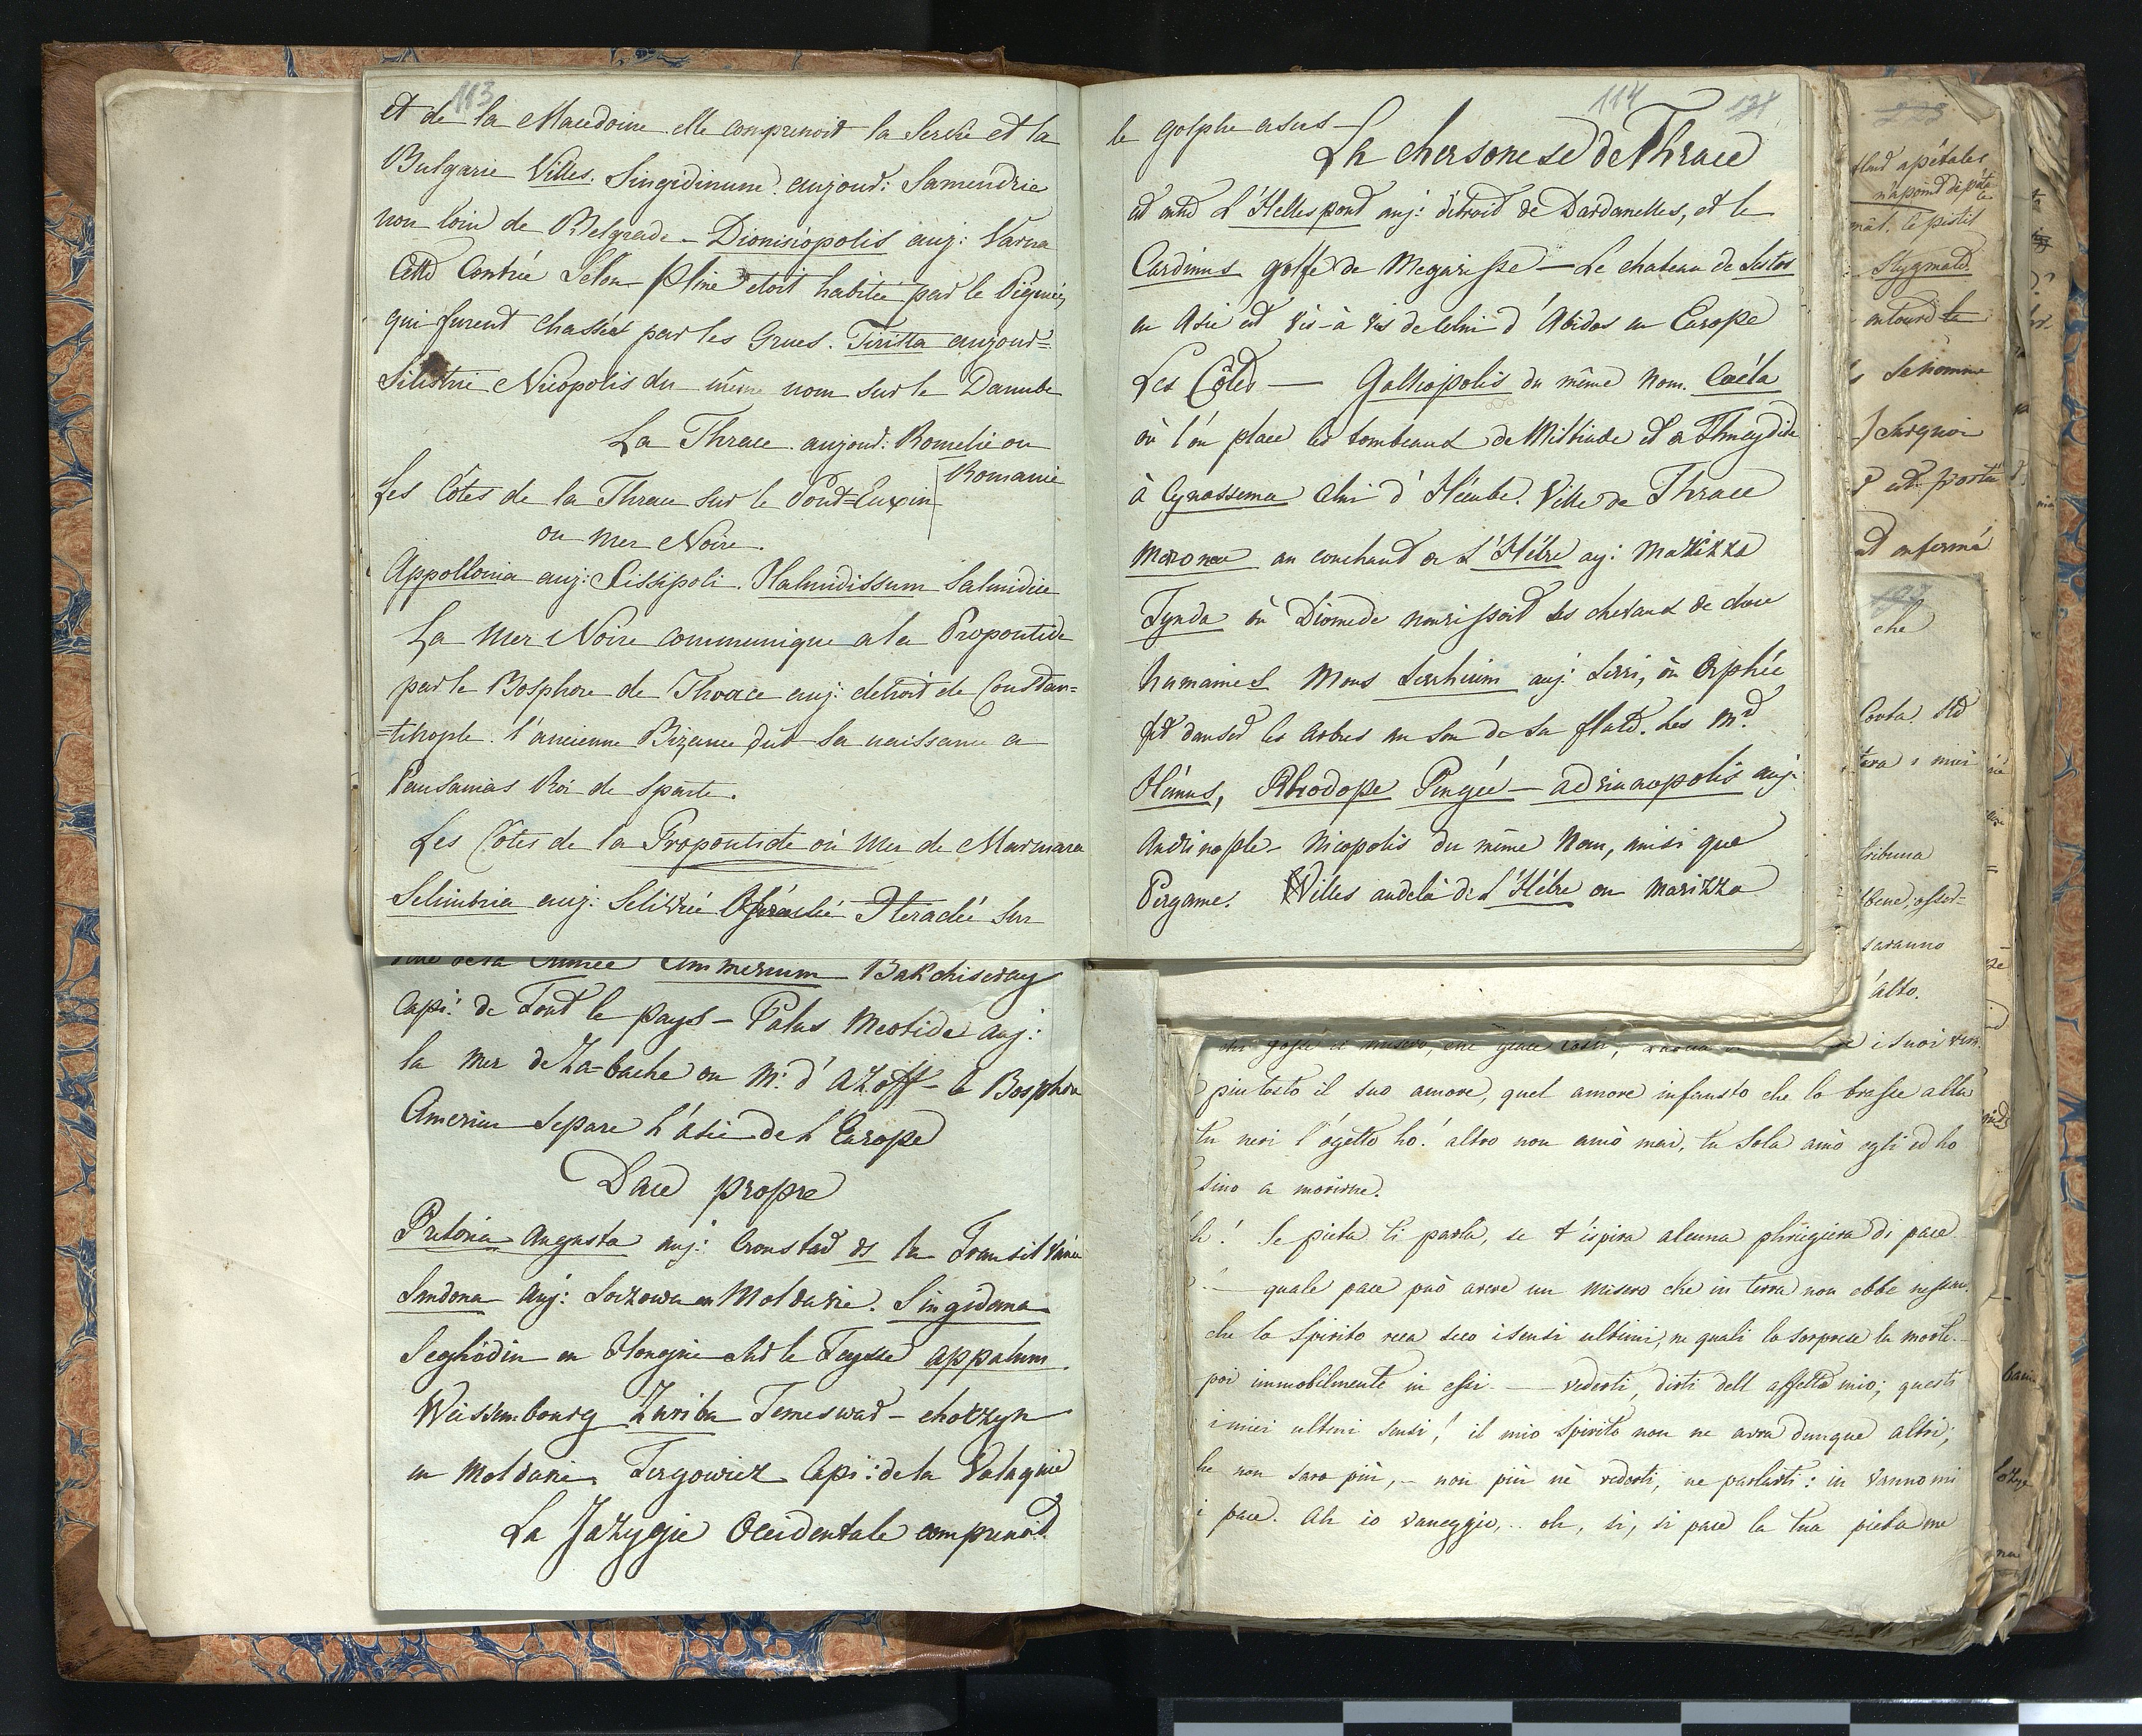 113
et de la Macedoine elle comprenoit la Servie et la
Bulgarie Villes. Singidinum. aujourd: Samendrie
non loin de Belgrade – Dionisiopolis auj: Varna
Cette Contrée Selon Pline etoit habitée par le Pigmés,
qui furent chassées par les Grues. Tirista aujourd=
Silistrie Nicopolis du même nom sur le Danube
La Thrace aujourd: Romelie ou
Romanie
Les Côtes de la Thrace sur le Pont=Euxin
ou Mer Noire.
Appollonia auj: Sissipoli. Halmidissum Salmidie
La Mer Noire communique a la Propontide
par le Bosphore de Thrace auj: detroit de Constan=
=tinople. l'ancienne Bizance dut sa naissance a
Pausanias Roi de Sparte.
Les Côtes de la Propontide où Mer de Marmara
Selimbria auj: Selivrée Heraclée sur
Crimée Cimmerium – Bakchiseray
Capi: de Tout le pays – Palus Meotide auj:
la Mer de Za-bache ou M. d'Azoff – le Bosphore
Cimerien Separe l'Asie de l'Europe
Dace propre
Pretoria Augusta auj: Cronstad ds la Transilvanie
Sandona auj: Soczowa en Moldavie. Singidona
Seghédin en Hongrie sur le Teysse appulum
Weissembourg Zuriba Temeswar – choczyn
en Moldavie Tergowicz Capi: de la Valaquie
La Jazygie Occidentale comprenoit
114 121
le golphe
La chersonese de Thrace
est entre L'Hellespont auj: détroit de Dardanelles, et le
Cardinus golfe de Megarisse – Le chateau de Sestos
en Asie est vis-à vis de celui d'Abidos en Europe
Les Côtes — Galliopolis du même Nom. Coéla
où l'on place les tombeaux de Miltiade et de Thucydide
à Cynossema celui d'Hécube. Ville de Thrace
Maronea au couchant de L'Hébre auj: Marizza
Tynda où Diomede nourissoit ses chevaux de chair
humaines Mons Serrheium auj: Serri, où Orphée
fit danser les Arbres au son de sa flute. Les Mt
Hémus, Rhodope Pengée – Adrianopolis auj:
Andrinople – Nicopolis du même Nom, ainsi que
Pergame. Villes audelà de L'Hébre ou Marizza
piutosto il suo amore, quel amore infausto che lo trasse alla
tu neri l'ogetto ho! altro non amò mai, tu sola amò egli ed ho
sino a morirne.
Se pieta ti parla, se t'ispira alcuna phrigiera di pace
quale pace può avere un misero che in terra non ebbe
che lo Spirito reca seco i sensi ultimi, ne quali lo sorprese la morte
poi immobilmente in essi. — vederti, dirti dell affetto mio; questi
i miei ultimi sensi! il mio spirito non ne avra dunque altri;
he non saro più, – non più nè vederti, ne parlarti: in vanno mi
i pace. Ah io vaneggio, .. oh, si, si pace la tua pieta me
223
apétales
le pistil
Stygmate
entouré
Se nomme
est
est enfermé
che
tribuna
saranno
alto.
i suoi